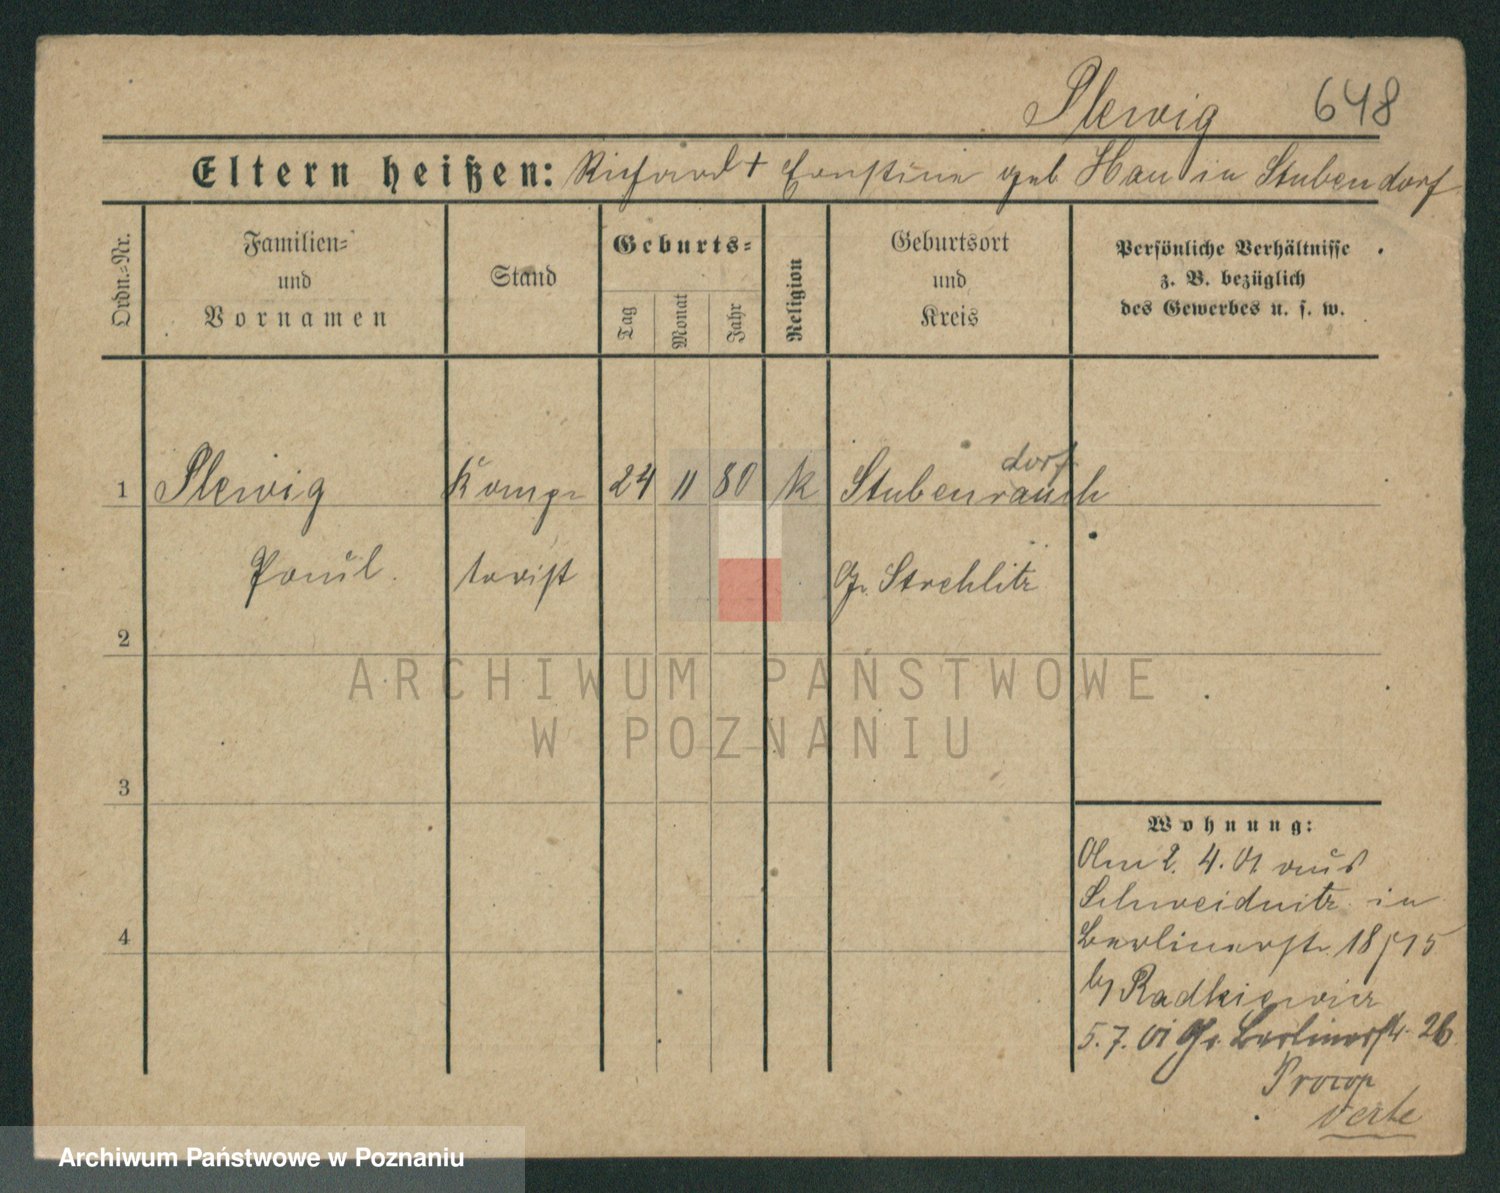 Plewig 648
Eltern heißen: Richard + Ernstine geb Hau in Stubendorf
Ordn.-Nr.
Familien-
und
Vornamen
Stand
Geburts-
Tag
Monat
Jahr
Religion
Geburtsort
und
Kreis
Persönliche Verhältnisse
z. B. bezüglich
des Gewerbes u. s. w.
dorf
1 Plewig Komp 24 11 80 k Stubenrauch
Paul torist Gr. Strehlitz
2
3
4
ARCHIWUM PAŃSTWOWE
W POZNANIU
Wohnung:
Am 2. 4. 01 aus
Schweidnitz in
Berlinerstr. 18/15
b/ Radkiewicz
5. 7. 01 Gr. Berlinerstr. 26
Procop
verte
Archiwum Państwowe w Poznaniu